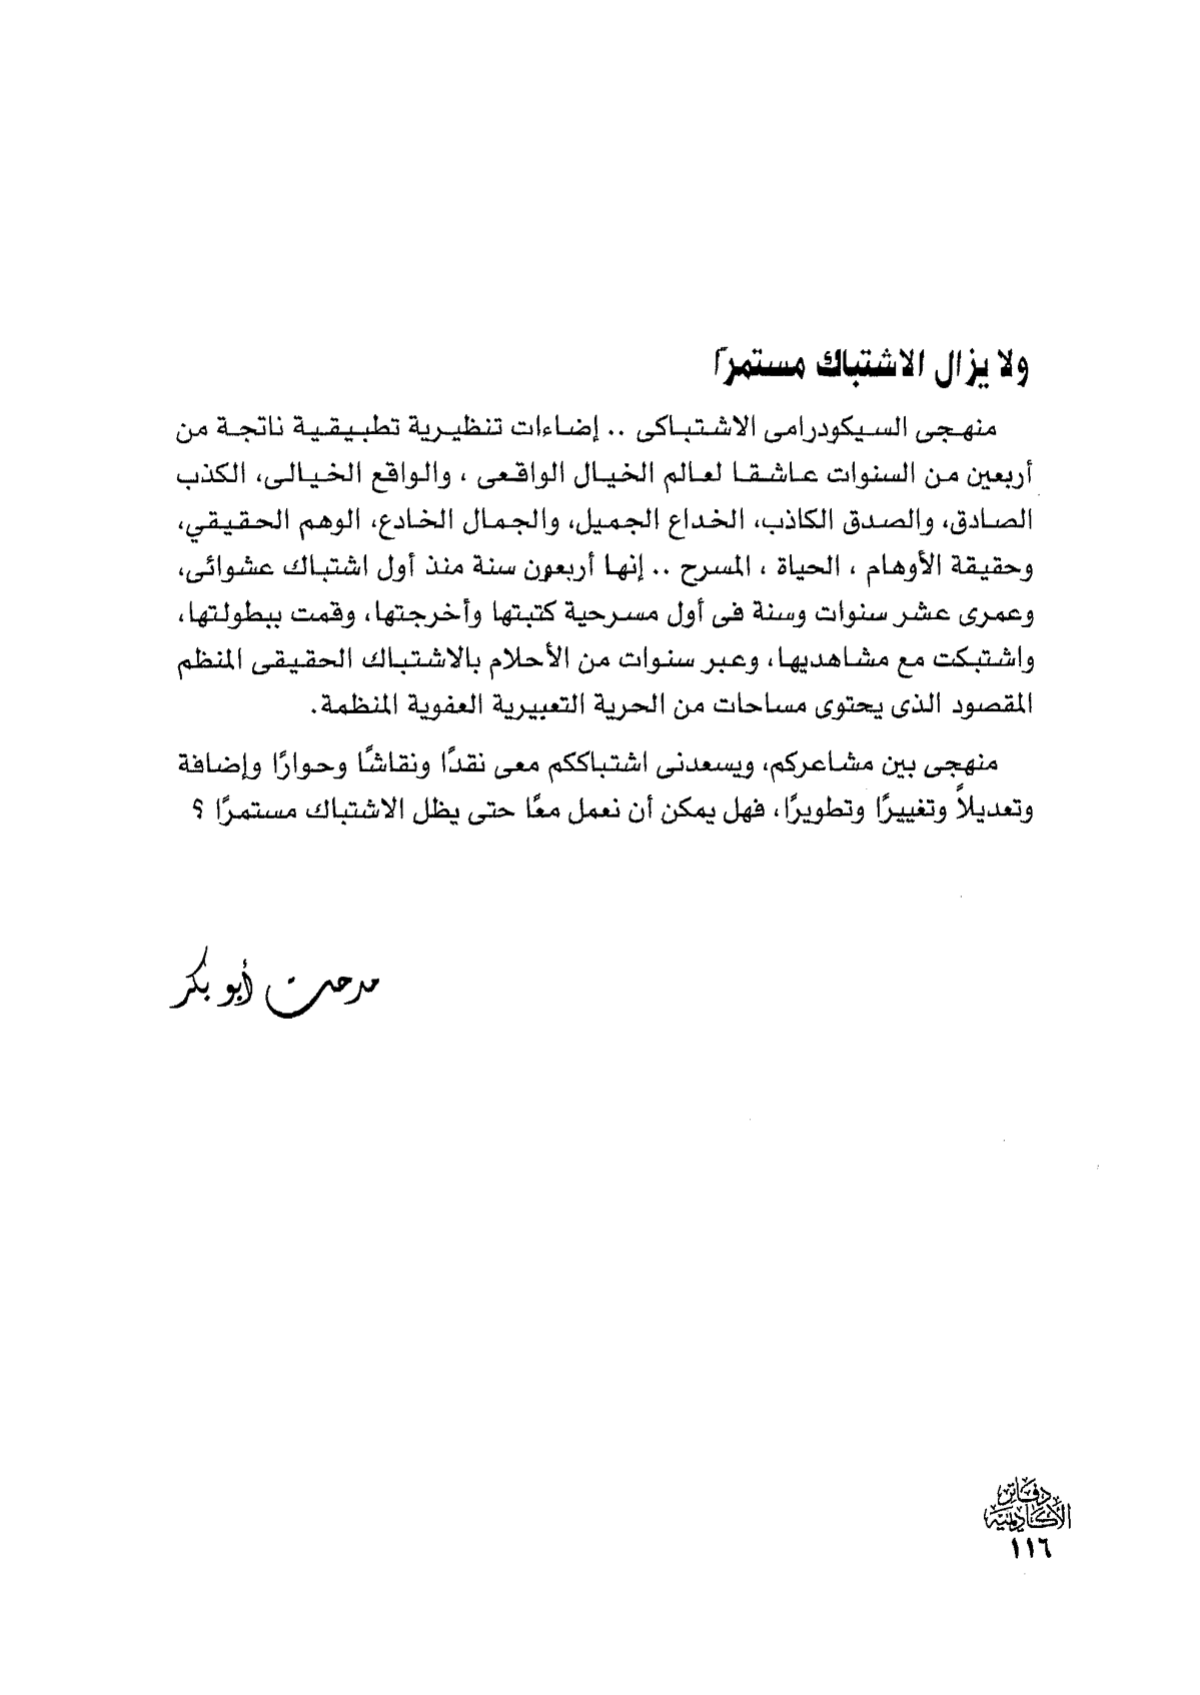 ولا يزال الاشتباك مستمرًا
منهجى السيكودرامى الاشتباكى .. إضاءات تنظيرية تطبيقية ناتجة من
أربعين من السنوات عاشقا لعالم الخيال الواقعى ، والواقع الخيالى، الكذب
الصادق، والصدق الكاذب، الخداع الجميل، والجمال الخادع، الوهم الحقيقي،
وحقيقة الأوهام ، الحياة ، المسرح .. إنها أربعون سنة منذ أول اشتباك عشوائى،
وعمرى عشر سنوات وسنة فى أول مسرحية كتبتها وأخرجتها، وقمت ببطولتها،
واشتبكت مع مشاهديها، وعبر سنوات من الأحلام بالاشتباك الحقيقى المنظم
المقصود الذى يحتوى مساحات من الحرية التعبيرية العفوية المنظمة.
منهجى بين مشاعركم، ويسعدنى اشتباككم معى نقدًا ونقاشًا وحوارًا وإضافة
وتعديلاً وتغييرًا وتطويرًا، فهل يمكن أن نعمل معًا حتى يظل الاشتباك مستمرًا ؟
مدحت أبو بكر
دفاتر
الأكاديمية
١١٦